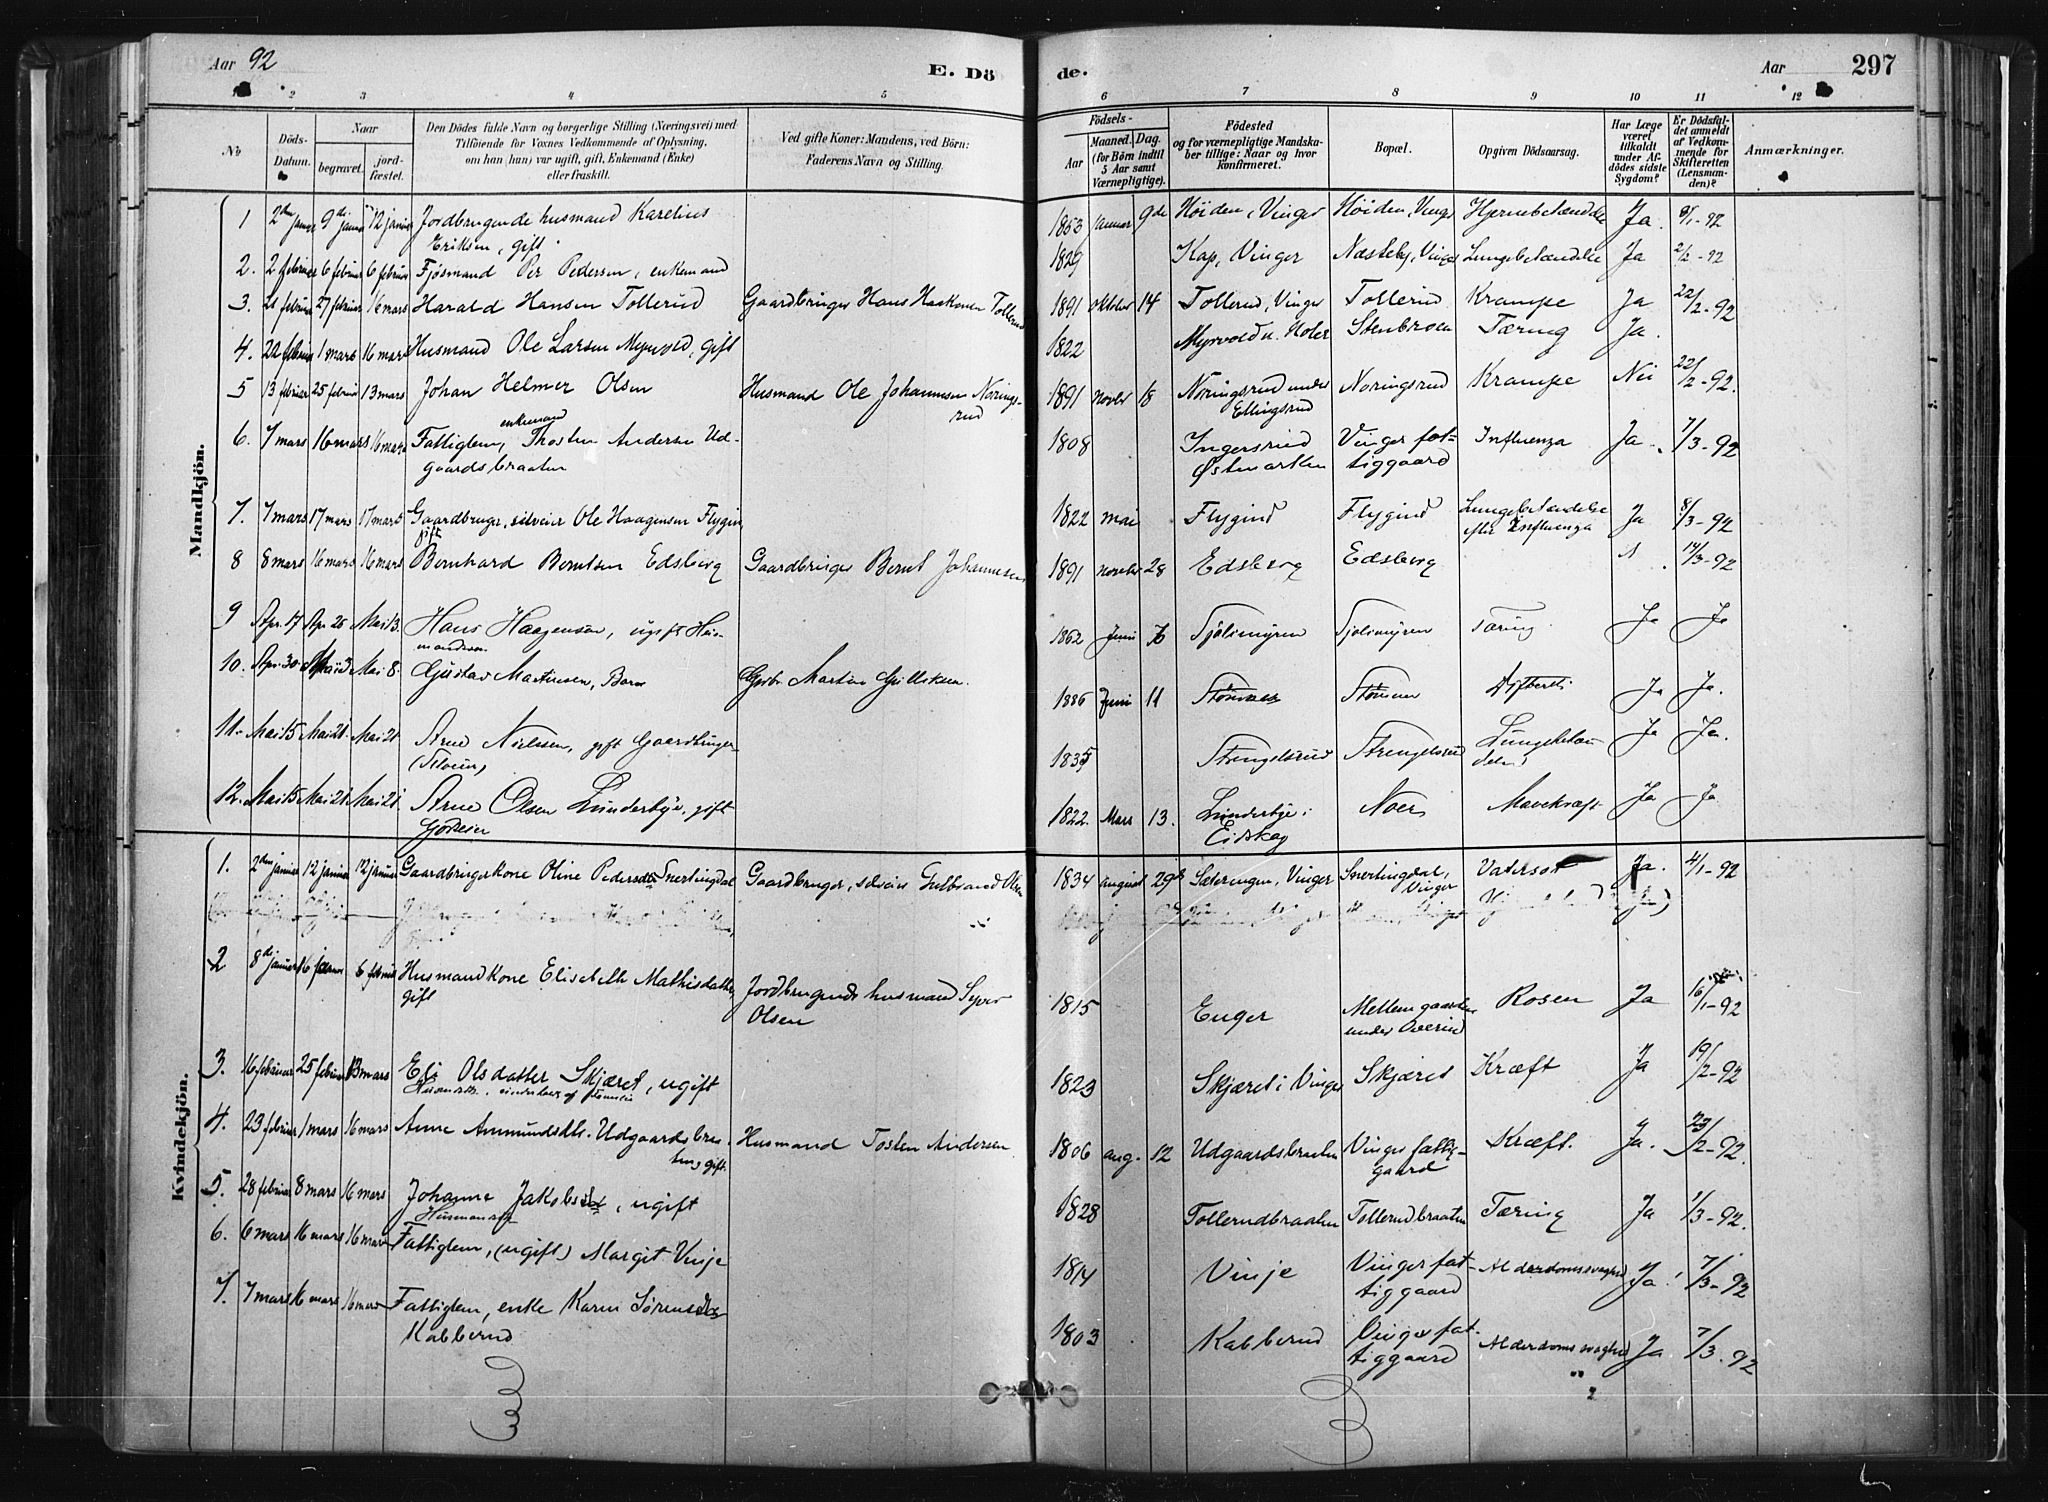 Aar 92
E. Dö
de.
Aar
297
1 2 3 4 5 6 7 8 9 10 11 12
No
Döds-
Datum.
Naar
begravet.
jord-
fæstet.
Den Dödes fulde Navn og borgerlige Stilling (Næringsvei) med
Tilföiende for Voxnes Vedkommende af Oplysning,
om han (hun) var ugift, gift, Enkemand (Enke)
eller fraskilt.
Ved gifte Koner: Mandens, ved Börn:
Faderens Navn og Stilling.
Födsels-
Aar
Maaned.
Dag.
(for Börn indtil
5 Aar samt
Værnepligtige).
Födested
og for værnepligtige Mandska-
ber tillige: Naar og hvor
konfirmeret.
Bopæl.
Opgiven Dödsaarsag.
Har Læge
været
tilkaldt
under Af-
dödes sidste
Sygdom?
Er Dödsfal-
det anmeldt
af Vedkom-
mende for
Skifteretten
(Lensman-
den)?
Anmærkninger.
Mandkjön.
1 2den januar 9de januar 12 januar Jordbrugende husmand Karelius 1853 januar 9de Höiden, Vinger Höiden, Vinger Hjernebetændelse Ja. 9/1-92
Eriksen, gift.
2. 2 februar 6 februar 6 februar Fjøsmand Per Pedersen, enkemand 1829 Kap, Vinger Næsteby, Vinger Lungebetændelse Ja 2/2-92
3. 21 februar 27 februar 16 mars Harald Hansen Tollerud Gaardbruger Hans Haakonsen Tollerud 1891 oktober 14 Tollerud, Vinger Tollerud Krampe Ja 22/2-92
4. 22 februar 1 mars 16 mars Husmand Ole Larsen Myrvold, gift 1822 Myrvold u. Noler Stenbroen Tæring Ja.
5 13 februar 25 februar 13 mars Johan Helmer Olsen Husmand Ole Johannesen Norings- 1891 novbr 18 Noringsrud under Noringsrud Krampe Nei 22/2-92.
rud Ellingsrud
enkemand
6. 7 mars 16 mars 16 mars Fattiglem, Thosten Andersen Ud- 1808 Ingersrud Vinger fat- Influenza Ja. 7/3-92
gaardsbraaten Østmarken tiggaard
7. 7 mars 17 mars 17 mars Gaardbruger, selveier Ole Haagensen Flygind 1822 mai Flygind Flygind Lungebetændelse Ja 8/3-92
gift efter Influenza
8 8 mars 16 mars 16 mars Bernhard Berntsen Edsberg Gaardbruger Bernt Johannesen 1891 novbr 28 Edsberg Edsberg N 14/3-92
9 Apr. 17 Apr. 26 Mai 13. Hans Haagensen, ugift Hus- 1862 Juni Sjølimyren Sjolimyren Tæring Ja Ja
mandssøn
10. Apr. 30 Mai 3 Mai 8. Gustav Martinsen, Barn Gbr. Martin Gulliksen. 1886 Juni 11 Strømnes Strømnes Difteri Ja Ja.
11. Mai 15 Mai 21. Mai 21. Arne Nielsen, gift Gaardbruger 1835 Strengelsrud Strengelsrud Lungebetæn- Ja Ja.
(Selveier) delse
12. Mai 15 Mai 21 Mai 21. Arne Olsen Lunderbye, gift 1822. Mars 13. Lunderbye i Noer Mavekræft Ja Ja
Gdbeier Eidskog
Kvindekjön.
1. 2den januar 12 januar 12 januar Gaardbrugerkone Oline Pedersdtr Snertingdal Gaardbruger, selveier Gulbrand Olsen 1834 august 29de Sæterengen, Vinger Snertingdal, Vattersot Ja. 4/1-92
Vinger
2 8de januar 16 januar 6 februar Husmandkone Elisebeth Mathisdatter, Jordbrugende husmand Syver 1815 Enger Mellem gaarden Rosen Ja 16/1-92
gift Olsen under Overud
3. 16 februar 25 februar 13 mars Eli Olsdatter Skjæret, ugift 1823 Skjæret i Vinger Skjæret Kræft Ja 19/2-92
4. 23 februar 1 mars 16 mars Anne Amundsdtr. Udgaardsbraa- Husmand Tosten Andersen 1806 aug. 12 Udgaardsbraaten Vinger fattig- Kræft. Ja. 23/2-92.
ten, gift. gaard
5. 28 februar 8 mars 16 mars Johanne Jakobsdtr, ugift 1828 Tollerudbraaten Tollerudbraaten Tæring Ja 1/3-92.
6. 6 mars 16 mars 16 mars Fattiglem, (ugift) Margit Vinje 1814 Vinje Vinger fat- Alderdomssvaghed Ja 7/3-92
tiggaard
7. 7 mars 16 mars 16 mars Fattiglem, enke Karen Sørensdtr 1803 Kabberud Vinger fat- Alderdomssvaghed Ja. 7/3-92
Kabberud tiggaard